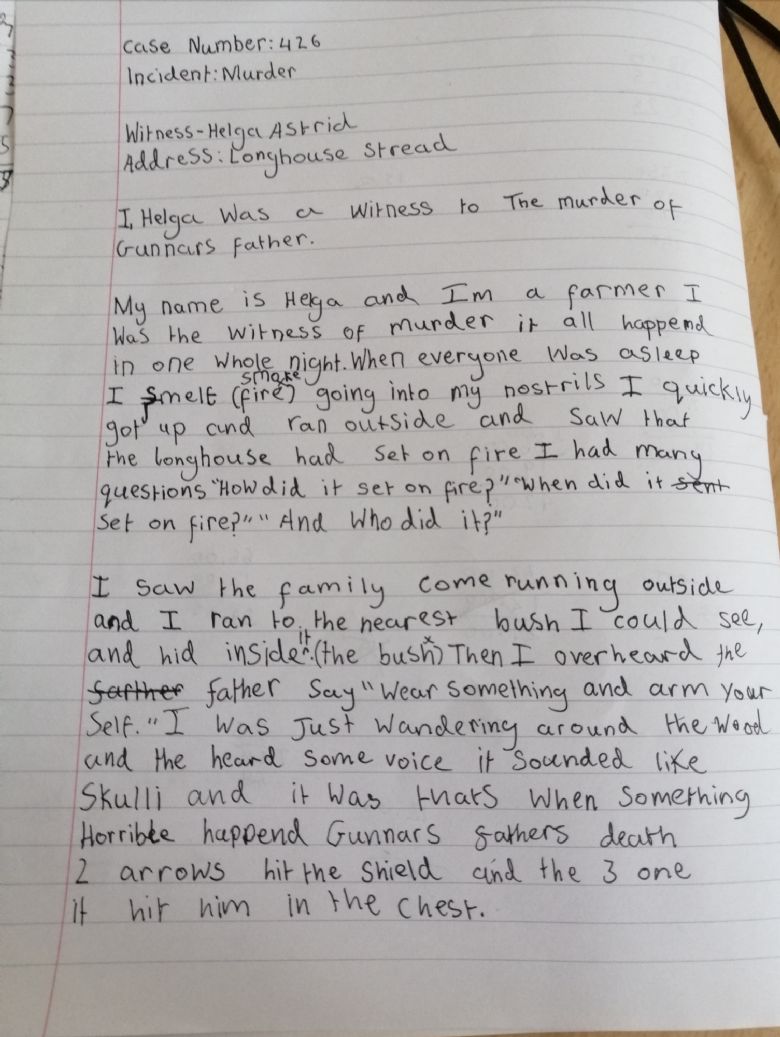 Case Number: 426
Incident: Murder
Witness-Helga Astrid
Address: Longhouse Stread
I, Helga Was a Witness to The murder of
Gunnars father.
My name is Helga and Im a farmer I
Was the witness of murder it all happend
in one whole night. When everyone was asleep
smoke
I smelt (fire) going into my nostrils I quickly
got up and ran outside and saw that
the longhouse had set on fire I had many
questions "How did it set on fire?" "When did it sent
set on fire?" "And Who did it?"
I saw the family come running outside
and I ran to the nearest bush I could see,
it
and hid inside. (the bush) Then I overheard the
farther father say "Wear something and arm your
self." I was Just wandering around the wood
and the heard some voice it sounded like
Skulli and it was thats when something
Horrible happend Gunnars fathers death
2 arrows hit the shield and the 3 one
it hit him in the chest.